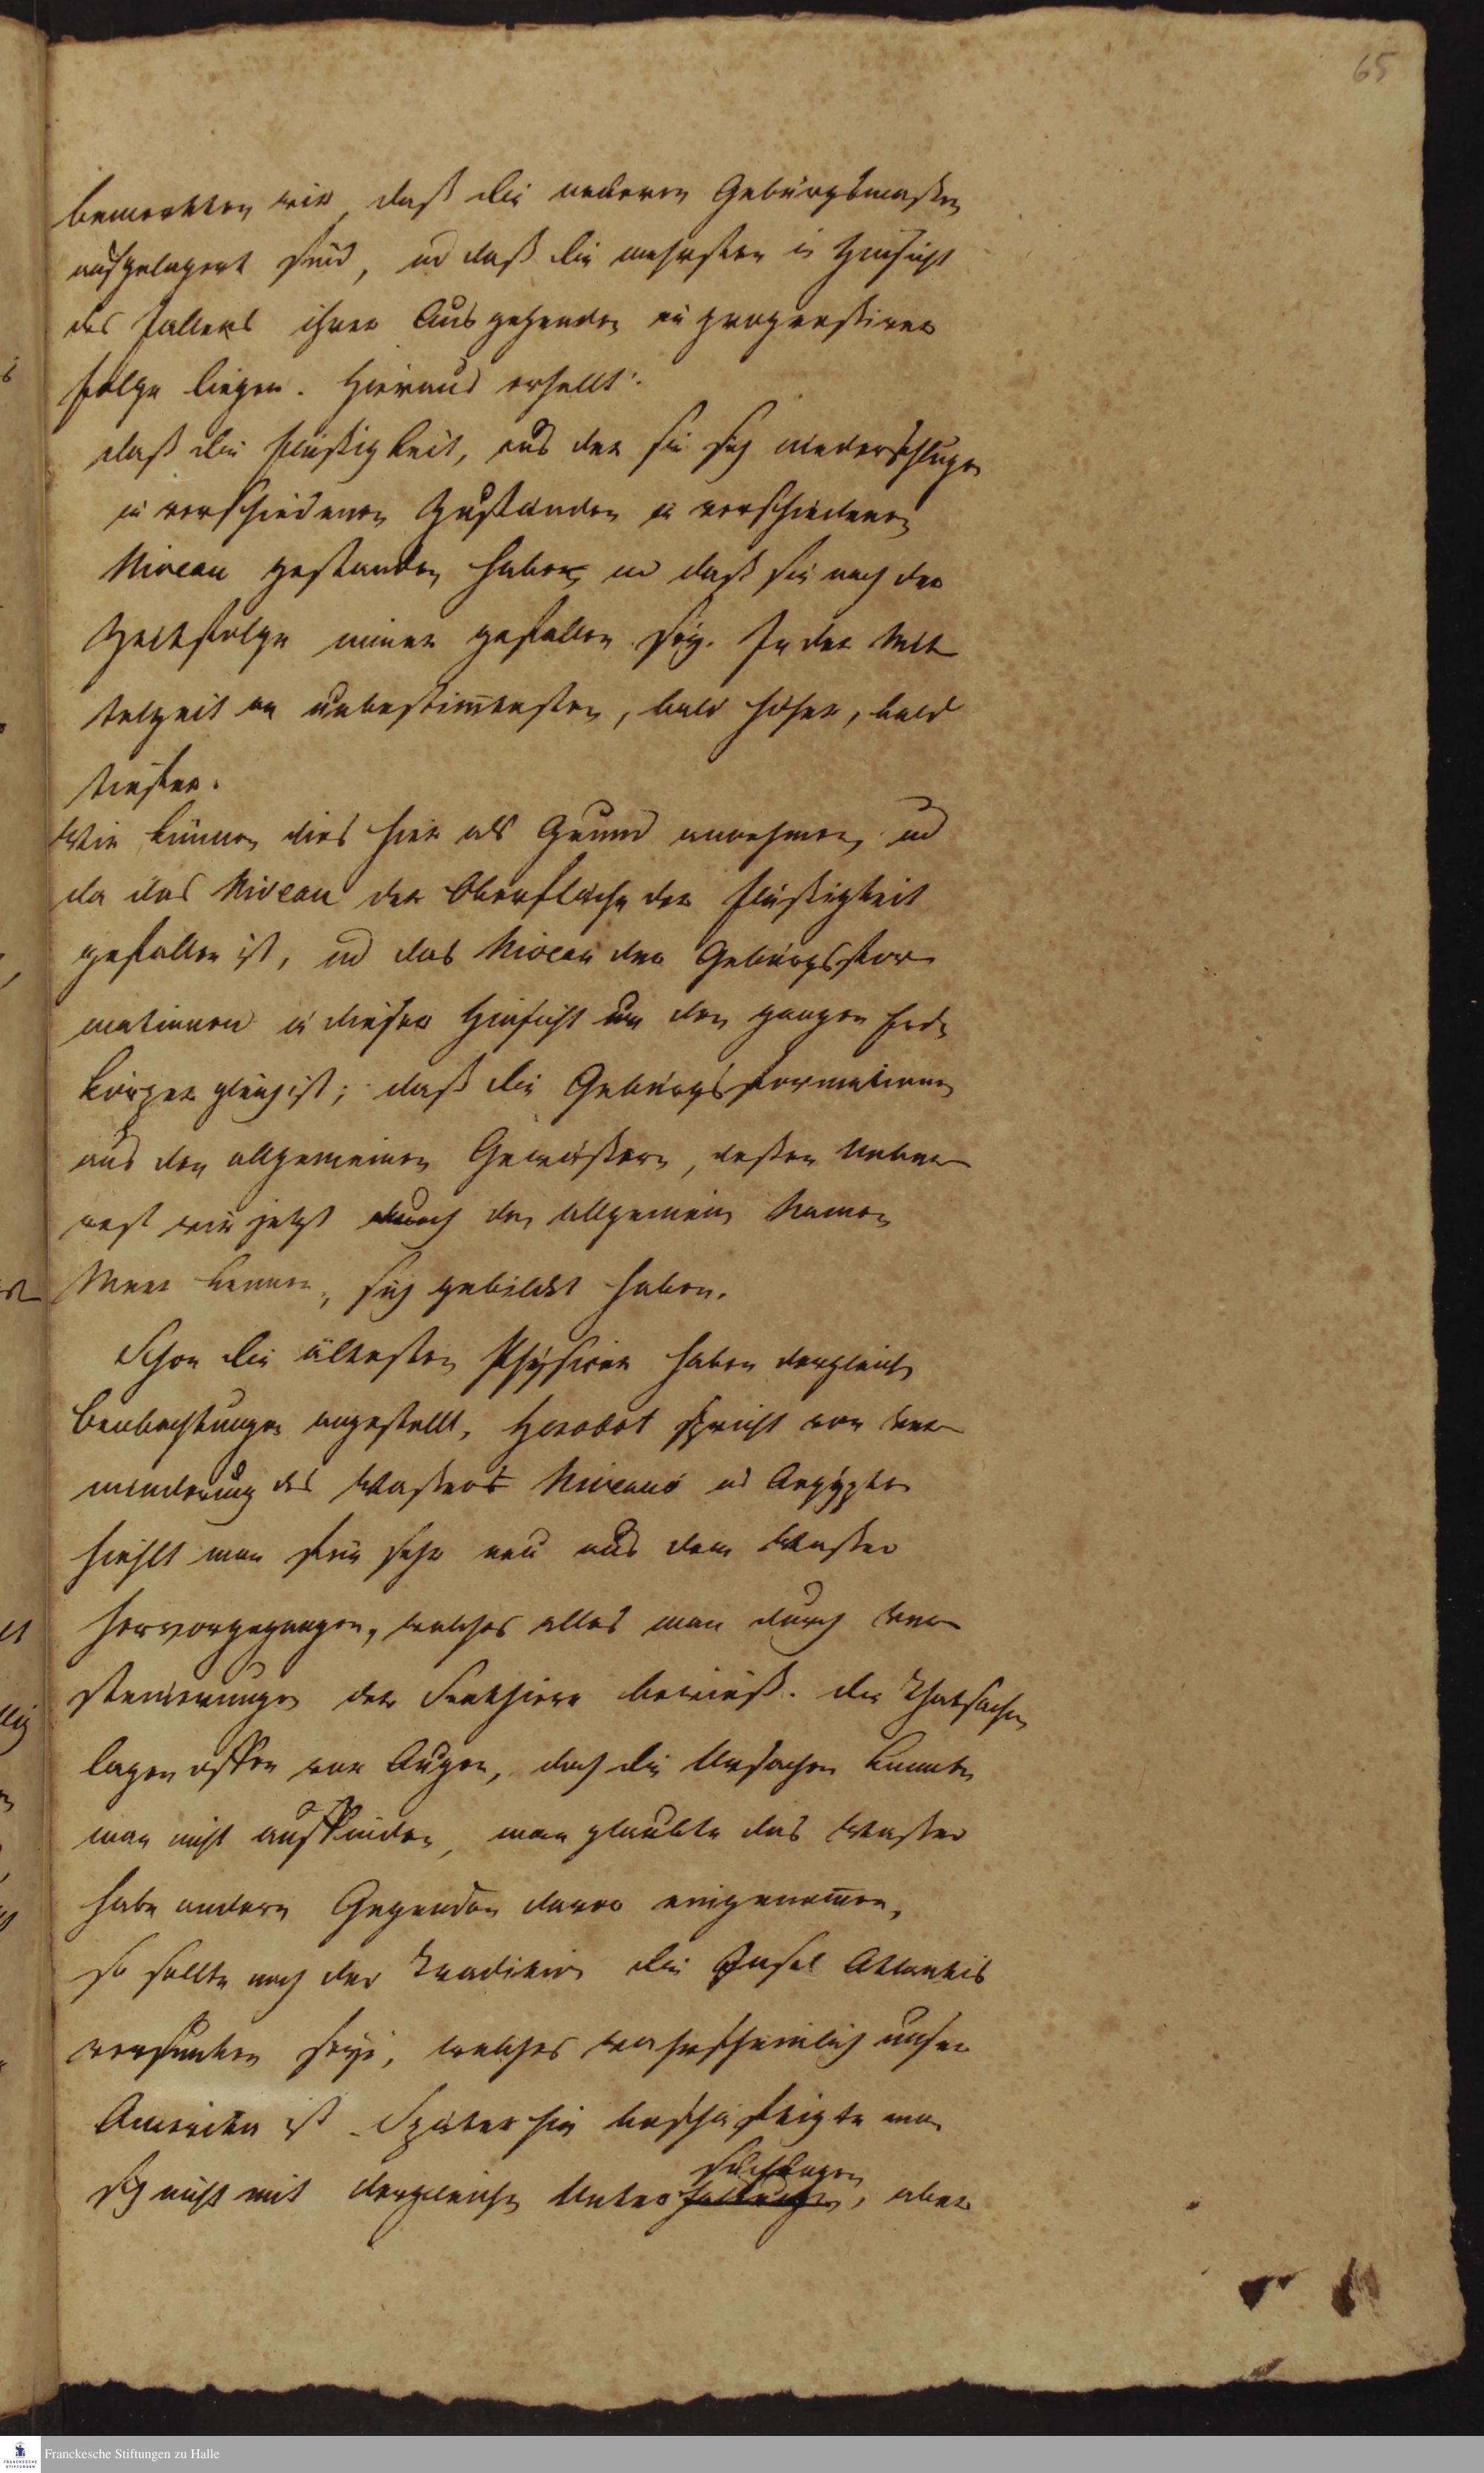 65
bemerkten wir, daß die anderen Gebürgsmaßen
aufgelagert sind, und daß die mehrsten in Hinsicht
des Fallens ihrer Ausgehenden in progreßiver
Folge liegen. Hieraus erhellt:
daß die Flüßigkeit, aus der sie sich niederschlugen
in verschiedenen Zuständen in verschiedenen
Niveau gestanden haben, und daß sie nach der
Zeitfolge immer gefallen sey. In der Mit
telzeit am unbestimtesten, bald höher, bald
tiefer.
Wir können dies hier als Grund annehmen, und
da das Niveau der Oberfläche der Flüßigkeit
gefallen ist, und das Niveau der Gebürgsfor
mationen in dieser Hinsicht um den ganzen Erd
körper gleich ist; daß die Gebürgsformationen
aus den allgemeinen Gewäßern, deßen Ueber
rest wir jetzt durch den allgemein Namen
Meer kennen, sich gebildet haben.
Schon die ältesten Physiker haben dergleich
Beobachtungen angestellt, Herodot spricht von Ver
minderung des Waßers Niveaus und Aegypten
hiehlt man für sehr neu aus dem Waßer
hervorgegangen, welches alles man durch Ver
steinerungen der Seethiere bewieß. Die Thatsachen
lagen offen vor Augen, doch die Ursachen konnte
man nicht auffinden, man glaubte das Waßer
habe andere Gegenden davor eingenomen,
so sollte nach der Tradition die Insel Atlantis
versunken seyn, welches wahrscheinlich unser
America ist. Späterhin beschäftigte man
suchungen
sich nicht mit dergleichen Unter, aber
Franckesche Stiftungen zu Halle